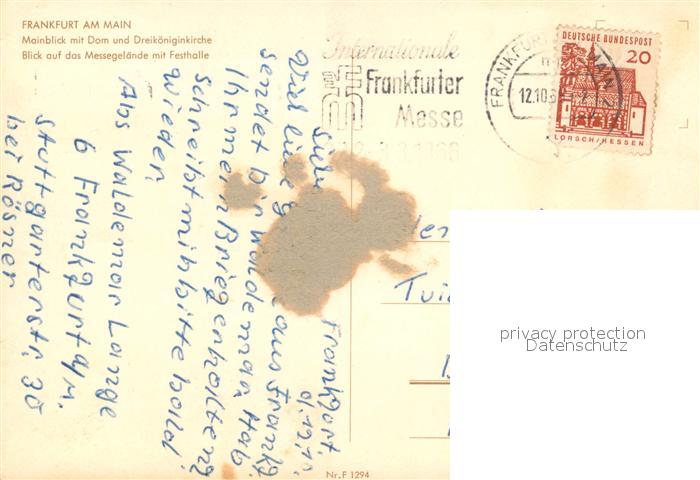 FRANKFURT AM MAIN
Mainblick mit Dom und Dreiköniginkirche
Blick auf das Messegelände mit Festhalle
Internationale
Frankfurter
Messe
FRANKFURT MAIN
12.10.6
DEUTSCHE BUNDESPOST
20
LORSCH/HESSEN
Frankfort,
d, 12, 10
Viel liebe aus Frankf
sendet Dir Waldemar, Hab
Ihr meinß Brief erhalten
Schreibt mihr bitte bald
wieder,
Abs Waldemar Lange
6 Frankfurt a/m.
Stuttgarterstr, 30
bei Rösner
privacy protection
Datenschutz
Nr. F 1294